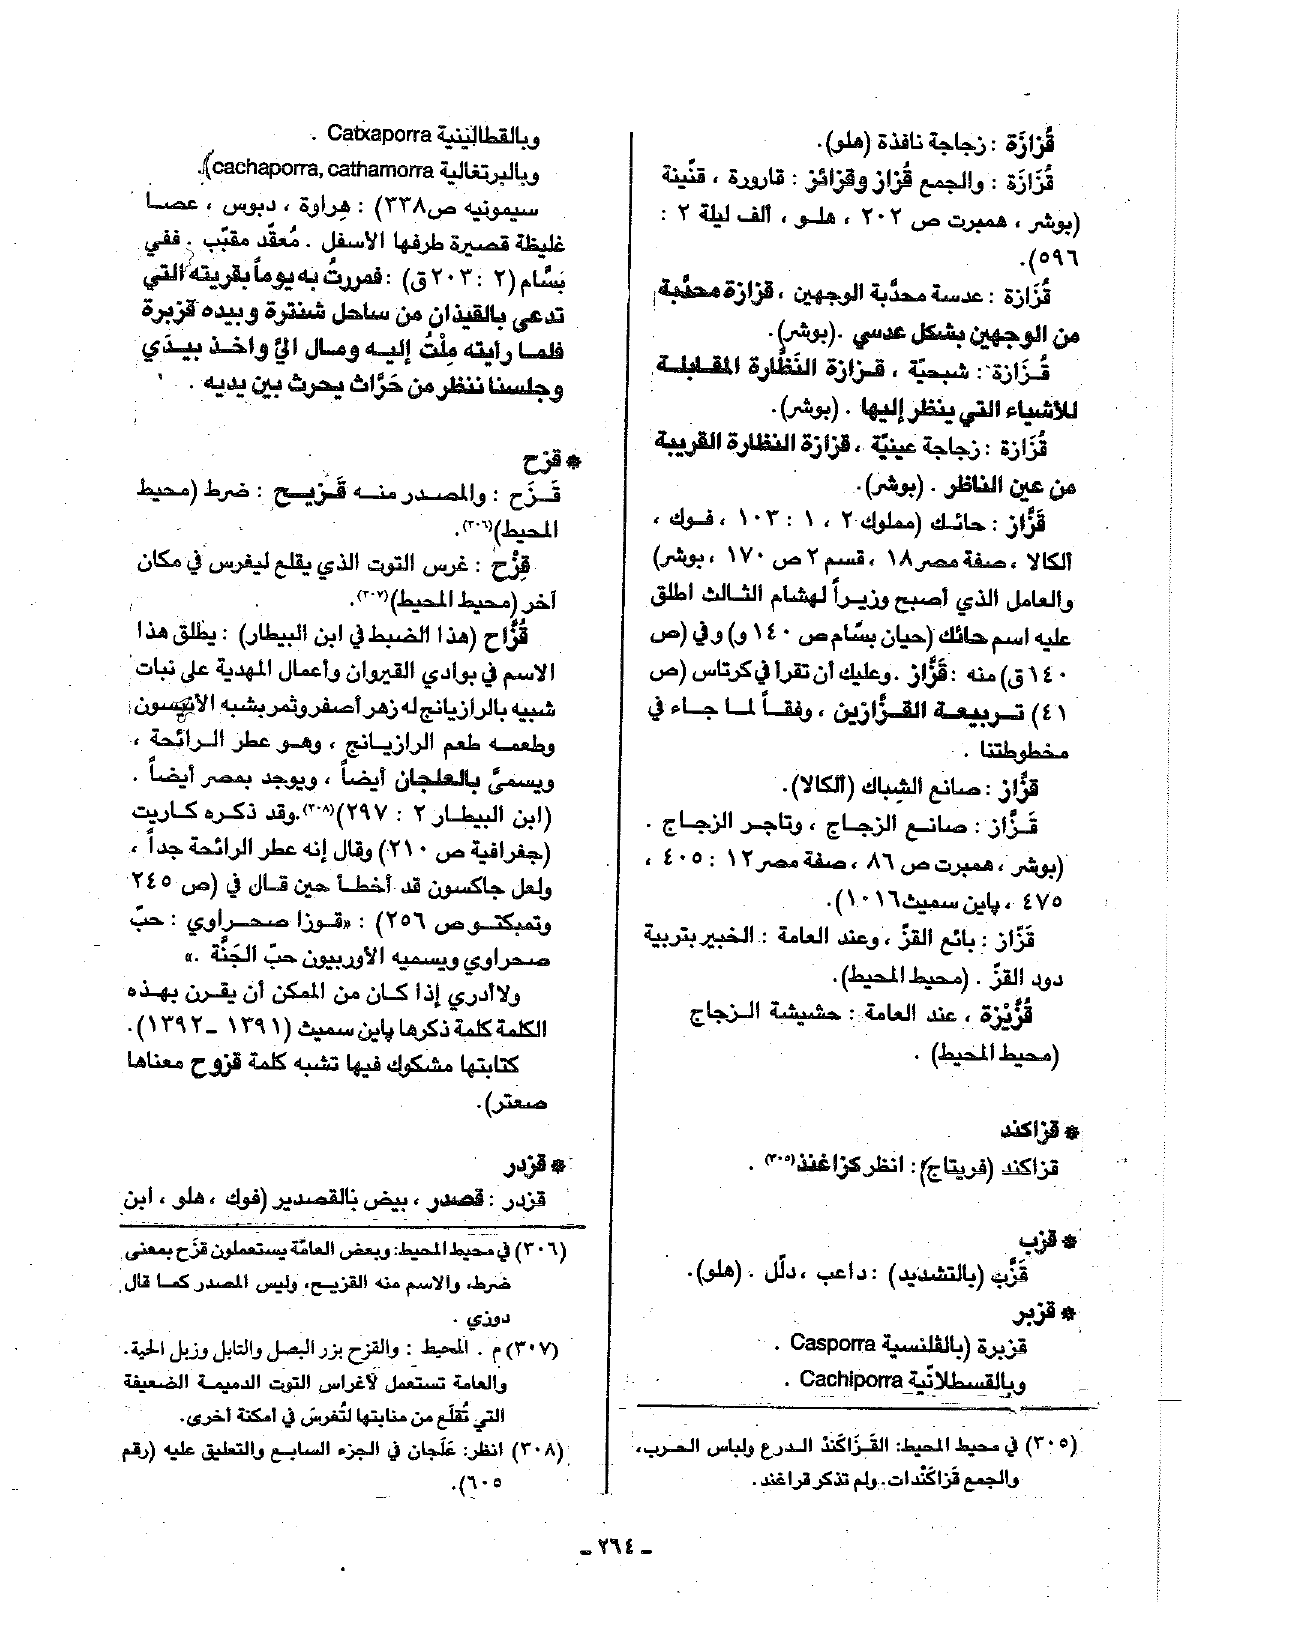 قُزازَة : زجاجة نافذة (هلو).
قُزَازَة : والجمع قُزاز وقزائز : قارورة ، قنّينة
(بوشر ، همبرت ص ٢٠٢ ، هلو ، ألف ليلة ٢ :
٥٩٦).
قُزَازة : عدسة محدَّبة الوجهين ، قزازة محدَّبة
من الوجهين بشكل عدسي . (بوشر).
قُزَازة : شبحيّة ، قزازة النَظَّارة المقابلة
للأشياء التي ينظر إليها . (بوشر).
قُزَازة : زجاجة عينيّة ، قزازة النظارة القريبة
من عين الناظر . (بوشر).
قَزَّاز : حائك (مملوك ٢ ، ١ : ١٠٣ ، فوك ،
ألكالا ، صفة مصر ١٨ ، قسم ٢ ص ١٧٠ ، بوشر)
والعامل الذي أصبح وزيراً لهشام الثالث اطلق
عليه اسم حائك (حيان بسّام ص ١٤٠ و) وفي (ص
١٤٠ق) منه : قَزَّاز . وعليك أن تقرأ في كرتاس (ص
٤١) تربيعة القزَّازين ، وفقاً لما جاء في
مخطوطتنا .
قزَّاز : صانع الشِباك (ألكالا).
قَزَّاز : صانع الزجاج ، وتاجر الزجاج .
(بوشر ، همبرت ص ٨٦ ، صفة مصر ١٢ : ٤٠٥ ،
٤٧٥ ، پاين سميث ١٠١٦).
قَزَّاز : بائع القزّ ، وعند العامة : الخبير بتربية
دود القزّ . (محيط المحيط).
قُزَّيْزة ، عند العامة : حشيشة الزجاج
(محيط المحيط) .
* قزاكند
قزاكند (فريتاج) : انظر كزاغند(٣٠٥) .
* قزب
قَزَّب (بالتشديد) : داعب ، دلّل . (هلو).
* قزبر
قزبرة (بالڤلنسية Casporra .
وبالقسطلانّية Cachiporra .
(٣٠٥) في محيط المحيط: القَزَاكَنْدْ الدرع ولباس الحرب،
والجمع قَزاكَنْدات. ولم تذكر قراغند.
وبالقطالينية Catxaporra .
وبالبرتغالية cachaporra, cathamorra).
سيمونيه ص٣٣٨) : هِراوة ، دبوس ، عصا
غليظة قصيرة طرفها الأسفل . مُعقَّد مقبّب . ففي
بَسَّام (٢ : ٢٠٣ق) : فمررتُ به يوماً بقريته التي
تدعى بالقيذان من ساحل شنترة وبيده قزبرة
فلما رأيته مِلْتُ إليه ومال اليَّ واخذ بيدَي
وجلسنا ننظر من حَرَّاث يحرث بين يديه .
* قزح
قَزَح : والمصدر منه قَزيح : ضرط (محيط
المحيط)(٣٠٦).
قِزَّح : غرس التوت الذي يقلع ليغرس في مكان
آخر (محيط المحيط)(٣٠٧).
قُزَّاح (هذا الضبط في ابن البيطار) : يطلق هذا
الاسم في بوادي القيروان وأعمال المهدية على نبات
شبيه بالرازيانج له زهر أصفر وثمر يشبه الأنيسون
وطعمه طعم الرازيانج ، وهو عطر الرائحة ،
ويسمىَّ بالعلجان أيضاً ، ويوجد بمصر أيضاً .
(ابن البيطار ٢ : ٢٩٧)(٣٠٨). وقد ذكره كاريت
(جغرافية ص ٢١٠) وقال إنه عطر الرائحة جداً ،
ولعل جاكسون قد أخطأ حين قال في (ص ٢٤٥
وتمبكتو ص ٢٥٦) : «قوزا صحراوي : حبّ
صحراوي ويسميه الأوربيون حبّ الجَنَّة .»
ولا أدري إذا كان من الممكن أن يقرن بهذه
الكلمة كلمة ذكرها پاين سميث (١٣٩١ _ ١٣٩٢).
كتابتها مشكوك فيها تشبه كلمة قزوح معناها
صعتر).
* قزدر
قزدر : قصدر ، بيض بالقصدير (فوك ، هلو ، ابن
(٣٠٦) في محيط المحيط: وبعض العامّة يستعملون قزَح بمعنى
ضرط، والاسم منه القزيح، وليس المصدر كما قال
دوزي .
(٣٠٧) م . المحيط : والقزح بزر البصل والتابل وزبل الحية.
والعامة تستعمل لأغراس التوت الدميمة الضعيفة
التي تُقلَع من منابتها لتُغرسَ في أمكنة أخرى.
(٣٠٨) انظر: عَلَجان في الجزء السابع والتعليق عليه (رقم
٦٠٥).
_ ٢٦٤ _